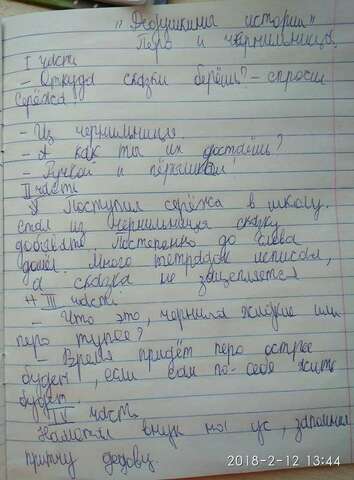 "Дедушкины истории"
Перо и чернильница.
I часть
- Откуда сказки берёшь? - спросил
Серёжа.
- Из чернильницы.
- А как ты их достаёшь?
- Ручкой и пёрышком!
II часть
Поступил Серёжа в школу.
стал из чернильница сказку
добывать. Постепенно до слева
дошёл. Много тетрадок исписал,
а сказка не зацепляется
III часть
- Что это, чернила жидкие или
перо тупее?
- Время придёт перо острее
будет, если сам по-себе жить
будет.
IV часть
Намотал внук на ус, запомнил
притчу дедову.
2018-2-12 13:44